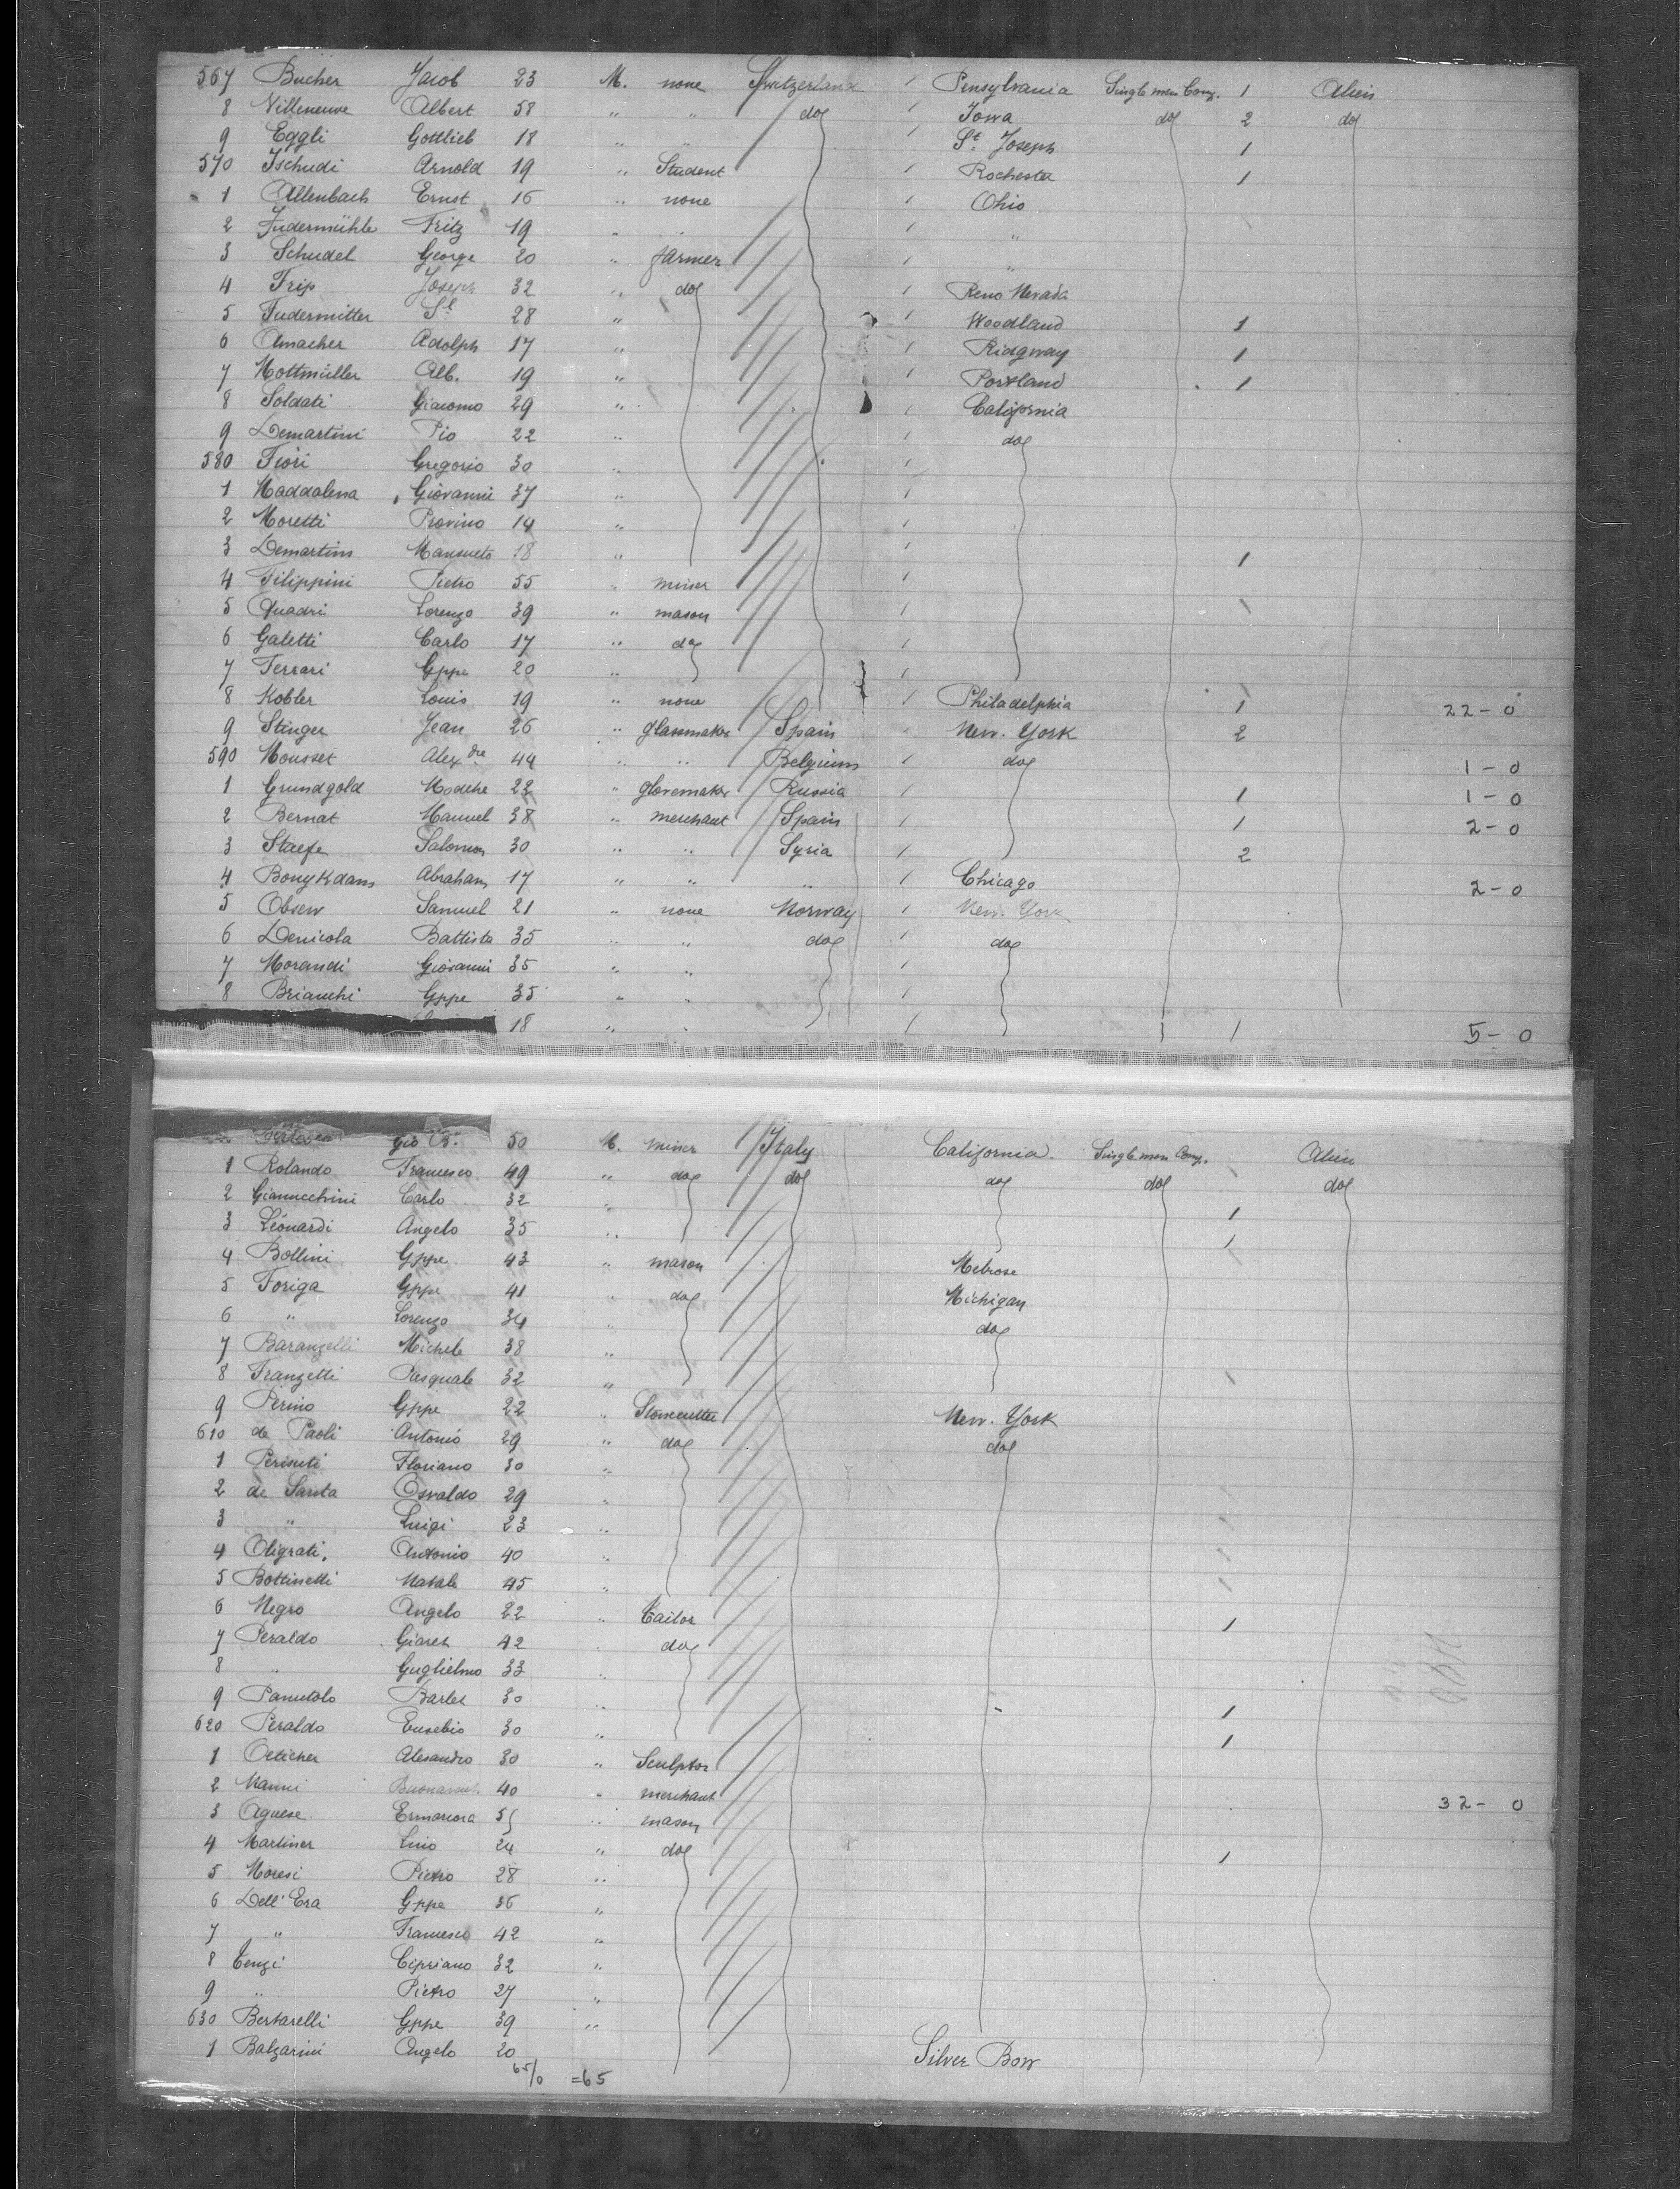 567 Bucher Jacob 23 M. none Switzerland / Pensylvania Single men Comp. 1 Alien
8 Villeneuve Albert 58 " " do / Iowa do 2 do
9 Eggli Gottlieb 18 " " / St. Joseph 1
570 Tschudi Arnold 19 " Student / Rochester 1
1 Allenbach Ernst 16 " none / Ohio
2 Zudermühle Fritz 19 " " / "
3 Schudel George 20 " farmer / "
4 Frip Joseph 32 " do / Reno Nevada
5 Tudermitter St 28 " / Woodland 1
6 Amacher Adolph 17 " / Ridgway 1
7 Mottmüller Alb. 19 " / Portland 1
8 Soldati Giacomo 29 " / California
9 Demartini Pio 22 " / do
580 Fiori Gregorio 30 " /
1 Maddalena Giovanni 37 " /
2 Moretti Provino 14 " /
3 Demartini Mansueto 18 " / 1
4 Filippini Pietro 55 " miner /
5 Quadri Lorenzo 39 " mason / \
6 Galetti Carlo 17 " do /
7 Ferrari Gppe 20 " /
8 Kobler Louis 19 " none / Philadelphia 1 22-0
9 Stinger Jean 26 " glassmaker Spain / New-York 2
590 Mousset Alexdre 44 " " Belgium / do 1-0
1 Grundgold Modche 22 " glovemaker Russia / 1 1-0
2 Bernat Manuel 38 " merchant Spain / 1 2-0
3 Staefe Salomon 30 " " Syria / 2
4 Bonykdam Abraham 17 " " " / Chicago 2-0
5 Obsew Samuel 21 " none Norway / New-York
6 Denicola Battista 35 " " do / do
7 Morandi Giovanni 35 " " /
8 Brianchi Gppe 35 " " /
18 " " / 1 5-0
Gio B. 50 M. miner Italy California. Single men Comp. Alien
1 Rolando Francesco 49 " do do do do do
2 Giannecchini Carlo 32 " 1
3 Léonardi Angelo 35 " 1
4 Bollini Gppe 43 " mason Melrose
5 Foriga Gppe 41 " do Michigan
6 " Lorenzo 34 " do
7 Baranzelli Michele 38 "
8 Franzetti Pasquale 32 " \
9 Perino Gppe 22 " Stonecutter New-York
610 de Paoli Antonio 29 " do do
1 Perisuti Floriano 30 "
2 de Santa Osvaldo 29 "
3 " Luigi 23 "
4 Oligrati. Antonio 40 "
5 Bottinelli Natale 45 "
6 Negro Angelo 22 " tailor 1
7 Peraldo Giares 42 " do
8 " Guglielmo 33 "
9 Panutolo Barlet 30 " 1
620 Peraldo Eusebio 30 " 1
1 Oeticher Alesandro 30 " Sculptor
2 Nanni 40 " merchant
3 Agnese Ermanora 35 " mason 32-0
4 Martiner Luio 24 " do 1
5 Moresi Pietro 28 "
6 Dell'Era Gppe 36 "
7 " Francesco 42 "
8 Tenzi Cipriano 32 "
9 " Pietro 27 "
630 Bertarelli Gppe 39 "
1 Balzarini Angelo 20 Silver Bow
65/0 =65